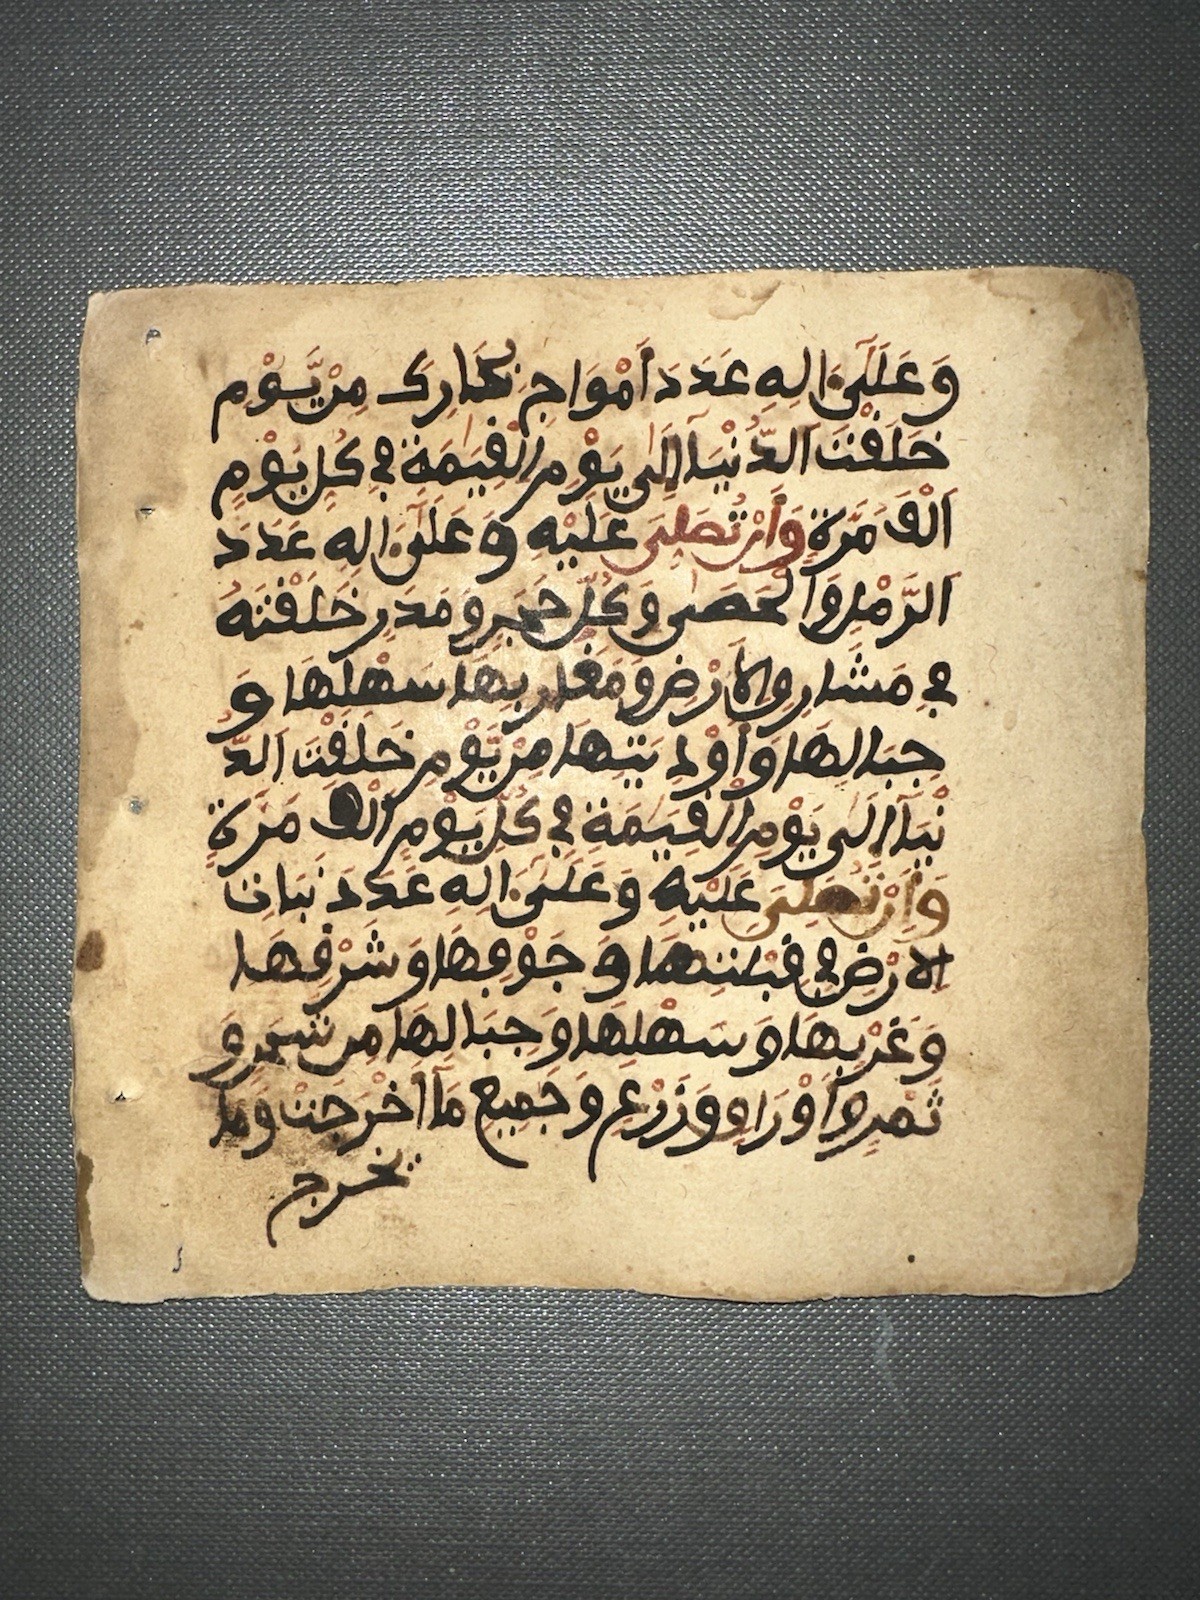 وَعَلَىٰ ءَالِهِ عَدَدَ أَمْوَاجِ بِحَارِكَ مِنْ يَّوْمِ
خَلَقْتَ الدُّنْيَا إِلَىٰ يَوْمِ الْقِيَٰمَةِ فِي كُلِّ يَوْمٍ
أَلْفَ مَرَّةٍ وَأَنْ تُصَلِّيَ عَلَيْهِ وَعَلَىٰ ءَالِهِ عَدَدَ
الرَّمْلِ وَالْحَصَىٰ وَكُلِّ حَجَرٍ وَمَدَرٍ خَلَقْتَهُ
فِي مَشَارِقِ الْأَرْضِ وَمَغَارِبِهَا سَهْلِهَا وَ
جِبَالِهَا وَأَوْدِيَتِهَا مِنْ يَّوْمِ خَلَقْتَ الدُّ
نْيَا إِلَىٰ يَوْمِ الْقِيَٰمَةِ فِي كُلِّ يَوْمٍ أَلْفَ مَرَّةٍ
وَأَنْ تُصَلِّيَ عَلَيْهِ وَعَلَىٰ ءَالِهِ عَدَدَ نَبَاتِ
الْأَرْضِ فِي قِبْلَتِهَا وَجَوْفِهَا وَشَرْقِهَا
وَغَرْبِهَا وَسَهْلِهَا وَجِبَالِهَا مِنْ شَجَرٍ وَ
ثَمَرٍ وَأَوْرَاقٍ وَزَرْعٍ وَجَمِيعِ مَا أَخْرَجَتْ وَمَا
يخرج